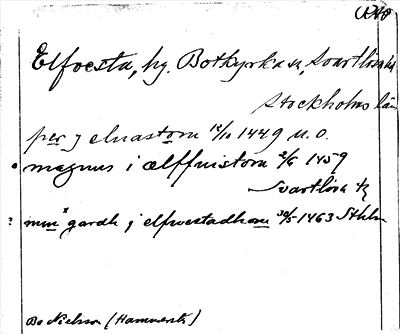 Elfvesta, by. Botkyrka sn, Svartlösa hd
Stockholms län
per j eluastom 12/10 1449 u.o.
magnus i ælffuistom 2/6 1459
Svartlösa tg
? min gardh j elfwestadhom 30/5 1463 Sthlm
Bo Nielsson (Hammersta)